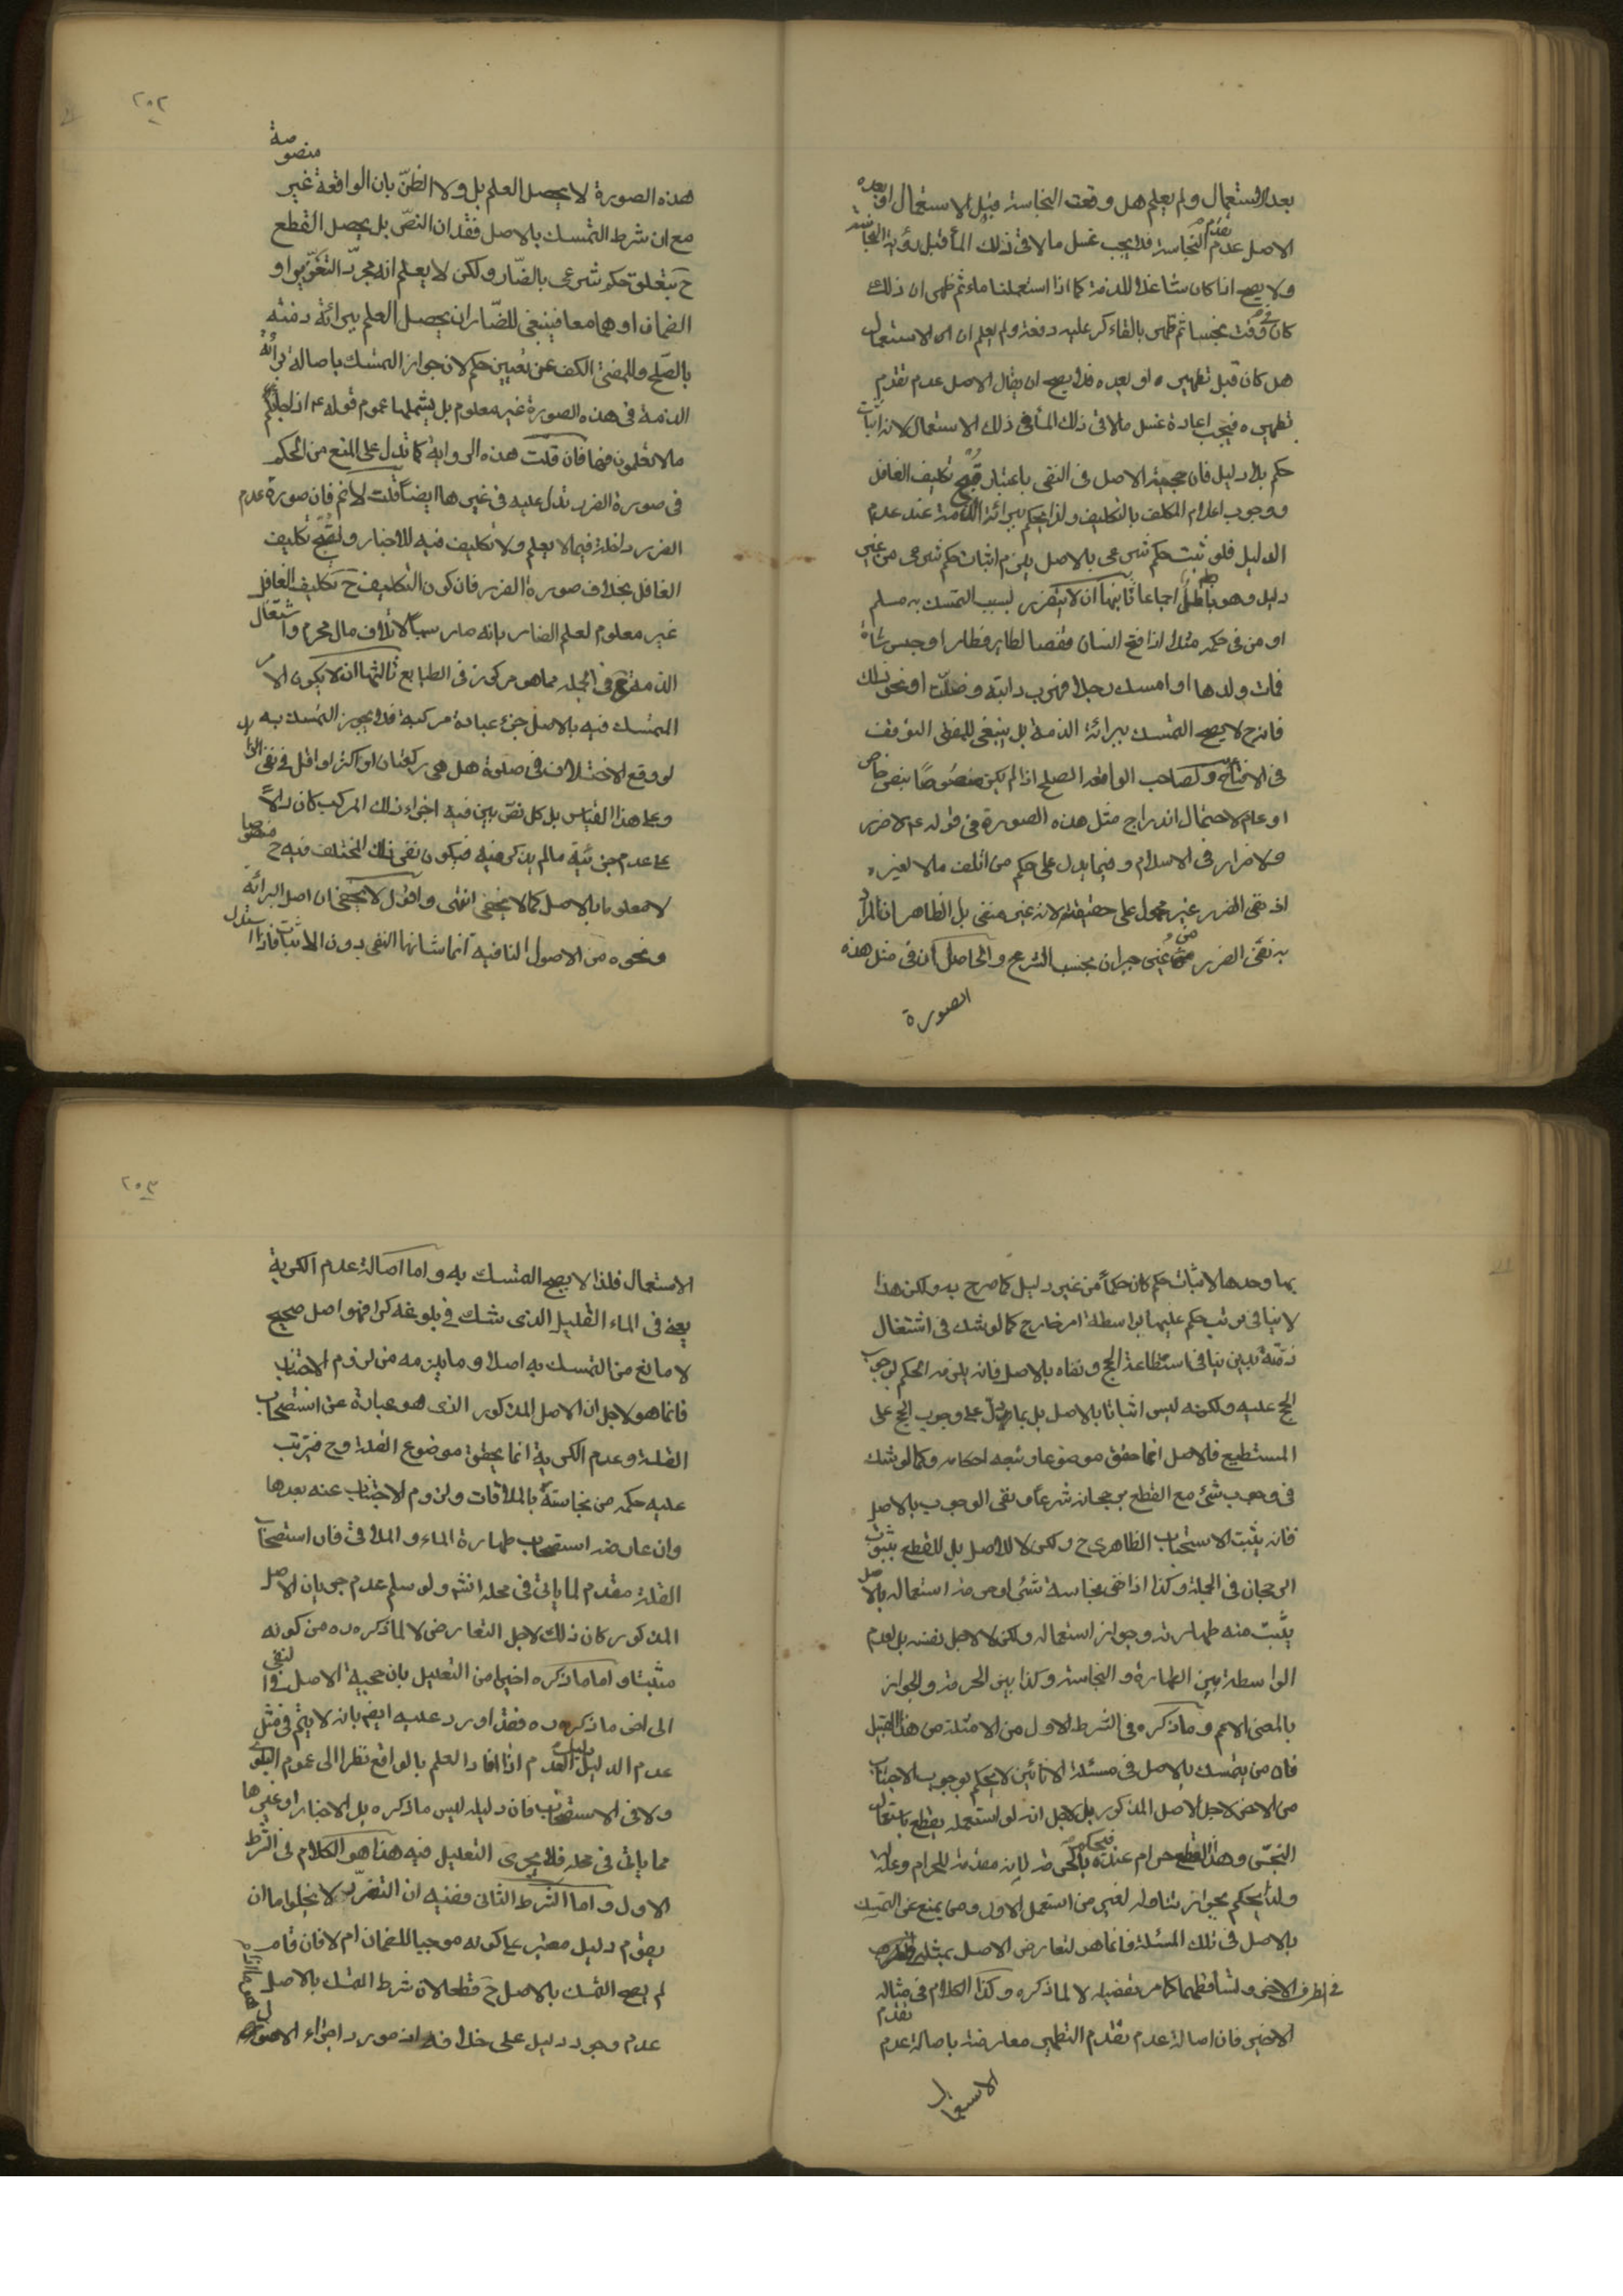 بعد الاستعمال ولم يعلم هل وقعت النجاسة قبل الاستعمال او بعده
الاصل عدم تقدم النجاسة فلا يجب غسل ما لاقى ذلك الماء قبل رؤية النجاسة
ولا يصح اذا كان شاغلا للذمة كما اذا استعملنا ماء ثم ظهر ان ذلك
كان في وقت نجسا ثم طهر بالقاء كر عليه دفعة ولم يعلم ان الاستعمال
هل كان قبل تطهيره او بعده فلا يصح ان يقال الاصل عدم تقدم
تطهيره فيجب اعادة غسل ما لاقى ذلك الماء في ذلك الاستعمال لانه اثبات
حكم بلا دليل فان حجية الاصل في النفي باعتبار قبح تكليف الغافل
ووجوب اعلام المكلف بالتكليف ولذا يحكم ببرائة الذمة عند عدم
الدليل فلو ثبت حكم شرعي بالاصل يلزم اثبات حكم شرعي من غير
دليل وهو باطل اجماعا ثانيها ان لا يتضرر بسبب التمسك به مسلم
او من في حكمه مثلا اذا فتح انسان قفصا لطاير فطار او حبس شاة
فمات ولدها او امسك رجلا فهرب دابته وضلت او نحو ذلك
فانه ح لا يصح التمسك ببرائة الذمة بل ينبغي للمفتي التوقف
في الافتاء ولصاحب الواقعة الصلح اذا لم يكن منصوصا بنص خاص
او عام لاحتمال اندراج مثل هذه الصورة في قوله ع لا ضرر
ولا ضرار في الاسلام وفيما يدل على حكم من اتلف مالا لغيره
اذ نفي الضرر غير محمول على حقيقته لانه غير منفي بل الظاهر ان المراد
به نفي الضرر من غير جبران بحسب الشرع والحاصل ان في مثل هذه
الصورة
٢٠٢
هذه الصورة لا يحصل العلم بل ولا الظن بان الواقعة غير منصوصة
مع ان شرط التمسك بالاصل فقدان النص بل يحصل القطع
ح بتعلق حكم شرعي بالضار ولكن لا يعلم انه مجرد التعزير او
الضمان او هما معا فينبغي للضار ان يحصل العلم ببرائة ذمته
بالصلح وللمفتي الكف عن تعيين حكم لان جواز التمسك باصالة برائة
الذمة في هذه الصورة غير معلوم بل يشملها عموم قوله ع اذا جائكم
ما لا تعلمون فها فان قلت هذه الرواية كما تدل على المنع من الحكم
في صورة الضرر تدل عليه في غيرها ايضا قلت لا نم فان صورة عدم
الضرر داخلة فيما لا يعلم ولا تكليف فيه للاخبار ولقبح تكليف
الغافل بخلاف صورة الضرر فان كون التكليف ح تكليف الغافل
غير معلوم لعلم الضار بانه صار سببا لاتلاف مال محرم واشتغال
الذمة ح في الجملة مما هو مركوز في الطبايع ثالثها ان لا يكون الامر
المتمسك فيه بالاصل جزء عبادة مركبة فلا يجوز التمسك به
لو وقع الاختلاف في صلوة هل هي ركعتان او اكثر او اقل في نفي الزايد
وعلى هذا القياس بل كل نص بين فيه اجزاء ذلك المركب كان دالا
على عدم جزئية ما لم يذكر فيه فيكون نفي ذلك المختلف فيه ح منصوصا
لا معلوما بالاصل كما لا يخفى انتهى واقول لا يخفى ان اصل البرائة
ونحوه من الاصول النافية انما شانها النفي بدون الاثبات فاذا استدل
بها وحدها لاثبات حكم كان حكما من غير دليل كما صرح به ولكن هذا
لا ينافي ترتب حكم عليها بواسطة امر خارج كما لو شك في اشتغال
ذمته بدين ينافي استطاعة الحج ونفاه بالاصل فانه يلزمه الحكم بوجوب
الحج عليه ولكنه ليس اثباتا بالاصل بل بما دل على وجوب الحج على
المستطيع فالاصل انما حقق موضوعا وتبعه احكامه وكما لو شك
في وجوب شئ مع القطع برجحانه شرعا ونفى الوجوب بالاصل
فانه يثبت الاستحباب الظاهري ح ولكن لا للاصل بل للقطع بثبوت
الرجحان في الجملة وكذا اذا نفى نجاسة شئ او حرمة استعماله بالاصل
يثبت منه طهارته وجواز استعماله ولكن لا لاجل نفسه بل لعدم
الواسطة بين الطهارة والنجاسة وكذا بين الحرمة والجواز
بالمعنى الاعم وما ذكره في الشرط الاول من الامثلة من هذا القبيل
فان من يتمسك بالاصل في مسئلة الانائين لا يحكم بوجوب الاجتناب
من الاخر لاجل الاصل المذكور بل لاجل انه لو استعمله يقطع باستعمال
النجس وهذا القطع حرام عنده فيحكم بالحرمة لانه مقدمة للحرام وعلة لها
ولذا يحكم بجواز تناوله لغير من استعمل الاول ومن يمنع عن التمسك
بالاصل في تلك المسئلة فانما هو لتعارض الاصل بمثله
في الطرف الاخر وتساقطهما كما مر تفصيله لا لما ذكره وكذا الكلام في مثاله
الاخير فان اصالة عدم تقدم التطهير معارضة باصالة عدم تقدم
الاستعمال
٢٠٣
الاستعمال فلذا لا يصح التمسك به واما اصالة عدم الكرية
يعني في الماء القليل الذي شك في بلوغه كرا فهو اصل صحيح
لا مانع من التمسك به اصلا وما يلزمه من لزوم الاجتناب
فانما هو لاجل ان الاصل المذكور الذي هو عبارة عن استصحاب
القلة وعدم الكرية انما يحقق موضوع القلة وح فيترتب
عليه حكمه من نجاسته بالملاقات ولزوم الاجتناب عنه بعدها
وان عارضه استصحاب طهارة الماء والملاقي فان استصحاب
القلة مقدم لما ياتي في محله انشم ولو سلم عدم جريان الاصل
المذكور كان ذلك لاجل التعارض لا لما ذكره ره من كونه
مثبتا واما ما ذكره اخيرا من التعليل بان حجية الاصل في النفي
الى اخر ما ذكره ره فقد اورد عليه ايضا بانه لا يتم في مثل
عدم الدليل دليل العدم اذا افاد العلم بالواقع نظرا الى عموم البلوى
ولا في الاستصحاب فان دليله ليس ما ذكره بل الاخبار او غيرها
مما ياتي في محله فلا يجري التعليل فيه هذا هو الكلام في الشرط
الاول واما الشرط الثاني ففيه ان التضرر لا يخلو اما ان
يقوم دليل معتبر على كونه موجبا للضمان ام لا فان قام
لم يصح التمسك بالاصل ح قطعا لان شرط التمسك بالاصل
عدم وجود دليل على خلافه